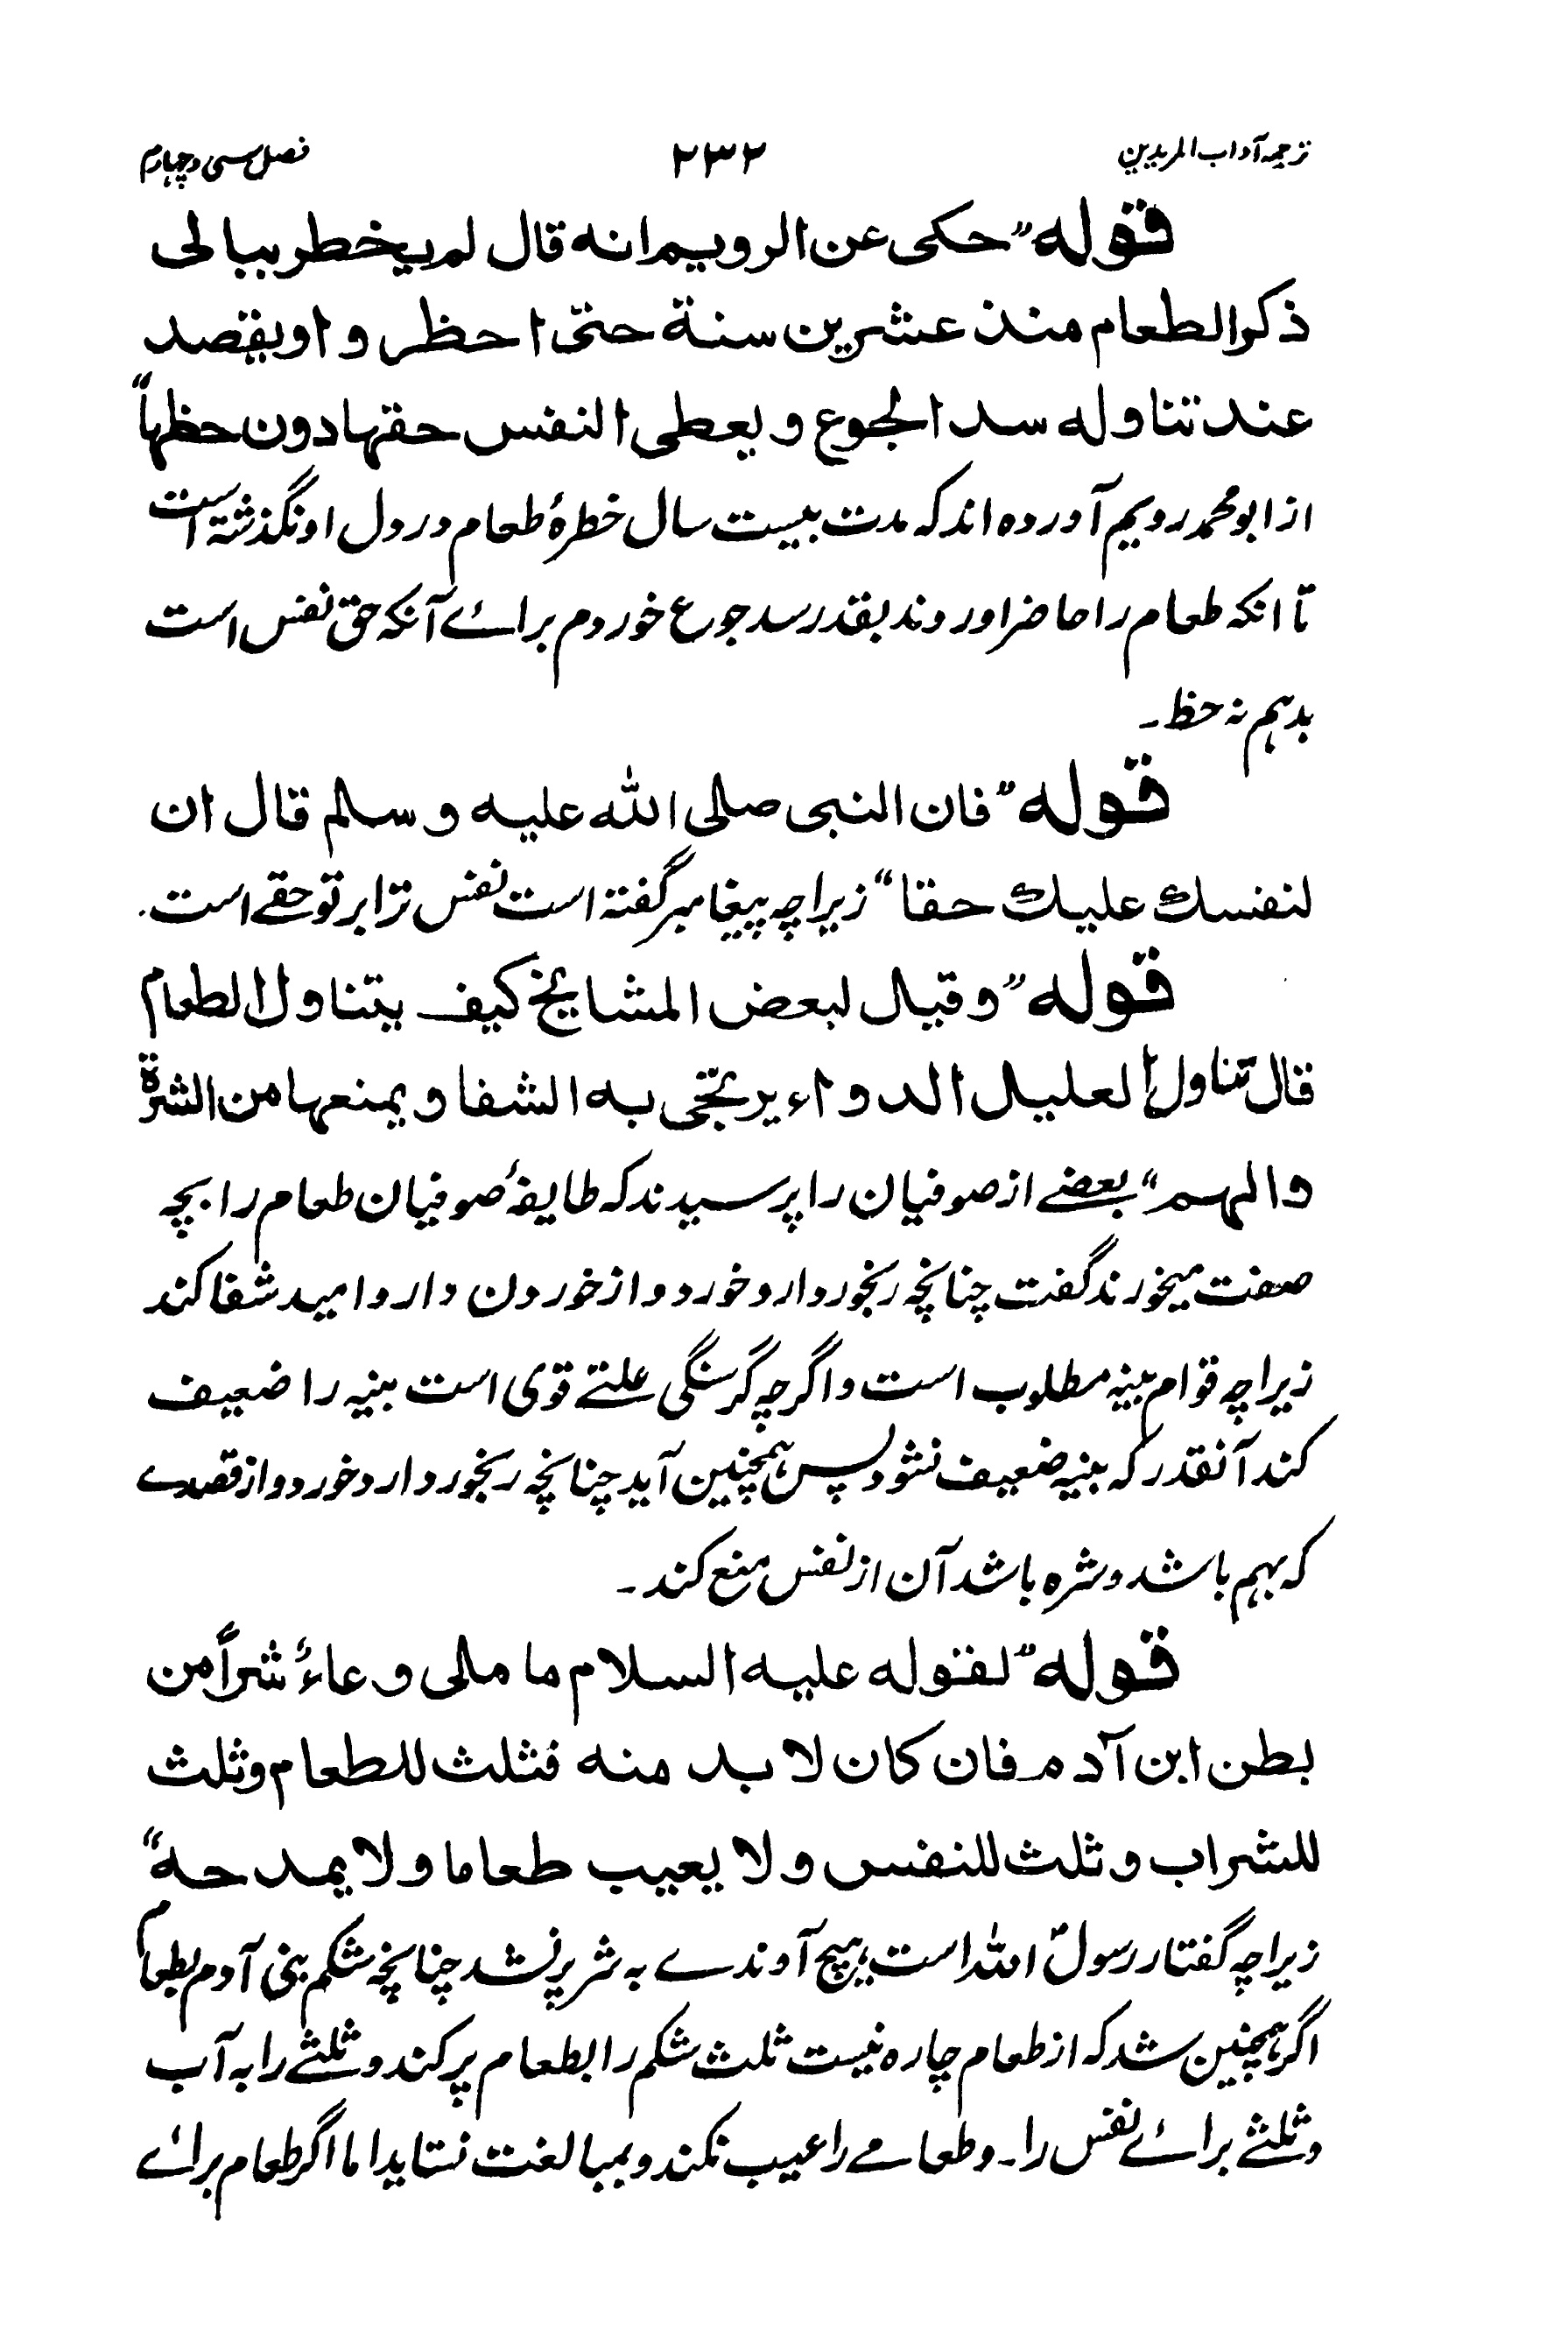 ترجمہ آداب المریدین ۲۳۲ فصل سی و چہارم
قوله ”حکی عن الرویم انه قال لم یخطر ببالی
ذکر الطعام منذ عشرین سنة حتیّ احظر و او یقصد
عند تناوله سد الجوع و یعطی النفس حقها دون حظها“
از ابو محمد رویم آورده اند که مدت بیست سال خطرۂ طعام در دل او نگذشتہ است
تا انکه طعام را حاضر اوردند بقدر سد جوع خوردم برائے آنکه حق نفس است
بدہم نہ حظ۔
قوله ”فان النبی صلی الله علیه و سلم قال ان
لنفسك علیك حقا“ زیراچہ پیغامبر گفتہ است نفس ترا بر تو حقے است.
قوله ”و قیل لبعض المشایخ کیف یتناول الطعام
قال تناول العلیل الدواء یرتجی به الشفا و یمنعها من الشرة
والهم“ بعضے از صوفیان را پرسیدند که طایفۂ صوفیان طعام را بچہ
صفت میخورند گفت چنانچہ رنجور دارو خورد و از خوردن دارو امید شفا کند
زیراچہ قوام بنیہ مطلوب است و اگرچہ گرسنگی علتے قوی است بنیہ را ضعیف
کند آنقدر که بنیہ ضعیف نشود پس ہمچنین آید چنانچہ رنجور دارد خورد و از قصدے
کہ بہم باشد و شره باشد آن از نفس منع کند۔
قوله ”لقوله علیه السلام ما ملی وعاءٌ شراً من
بطن ابن آدم فان کان لا بد منه فثلث للطعام وثلث
للشراب و ثلث للنفس و لا یعیب طعاما و لا یمدحه“
زیراچہ گفتار رسولؐ الله است ہیچ آوندے بہ شر پر نشد چنانچہ شکم بنی آدم بطعام
اگر ہمچنین شد که از طعام چاره نیست ثلث شکم را بطعام پر کند و ثلثے را بہ آب
و ثلثے برائے نفس را۔ و طعامے را عیب نکند و بمبالغت نستاید اما اگر طعام برائے